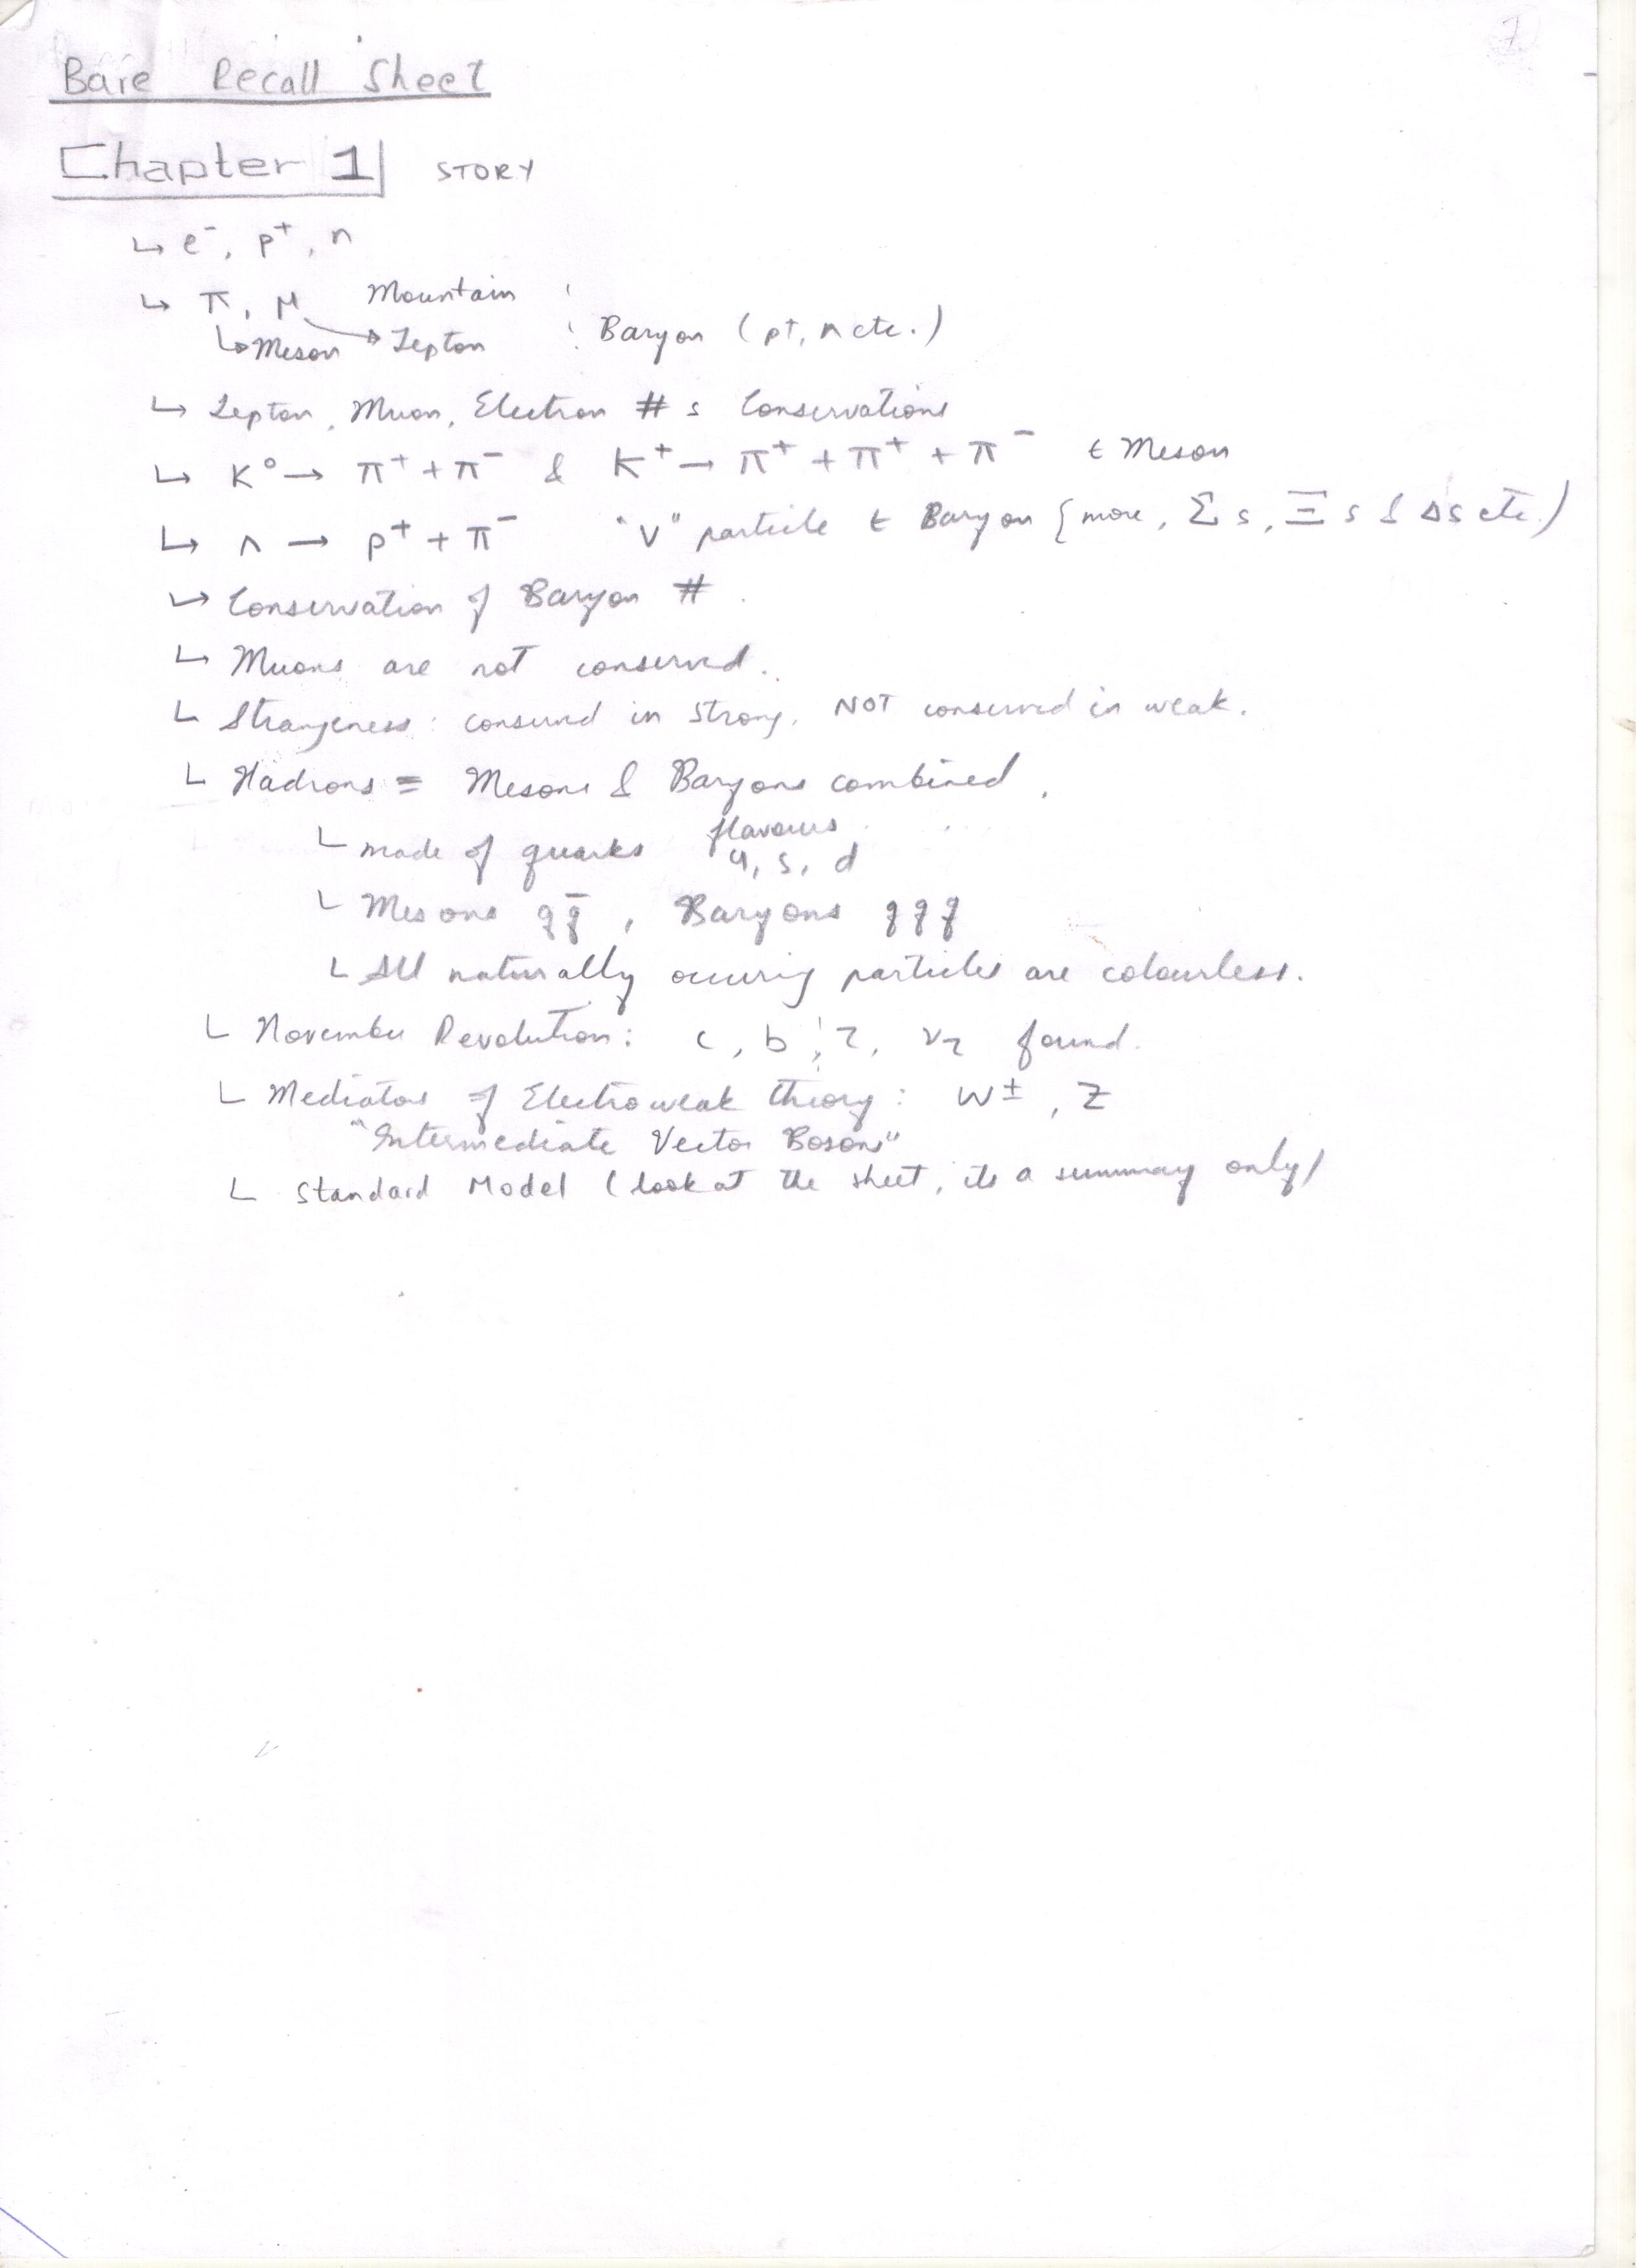 7
Bare Recall Sheet
Chapter 1 STORY
↳ e⁻, p⁺, n
↳ π, μ Mountain
↳ Meson → Lepton Baryon (p⁺, n etc.)
↳ Lepton, Muon, Electron # s Conservations
↳ K⁰ → π⁺ + π⁻ & K⁺ → π⁺ + π⁺ + π⁻ ∈ Meson
↳ Λ → p⁺ + π⁻ "V" particle ∈ Baryon {more, Σ s, Ξ s & Δs etc.)
↳ Conservation of Baryon #.
↳ Muons are not conserved.
↳ Strangeness: conserved in Strong, NOT conserved in weak.
↳ Hadrons = Mesons & Baryons combined.
flavours
↳ made of quarks u, s, d
↳ Mesons qq̄, Baryons qqq
↳ All naturally occuring particles are colourless.
↳ November Revolution: c, b, τ, ντ found.
↳ Mediators of Electroweak theory: W±, Z
"Intermediate Vector Bosons"
↳ Standard Model (look at the sheet, its a summary only)